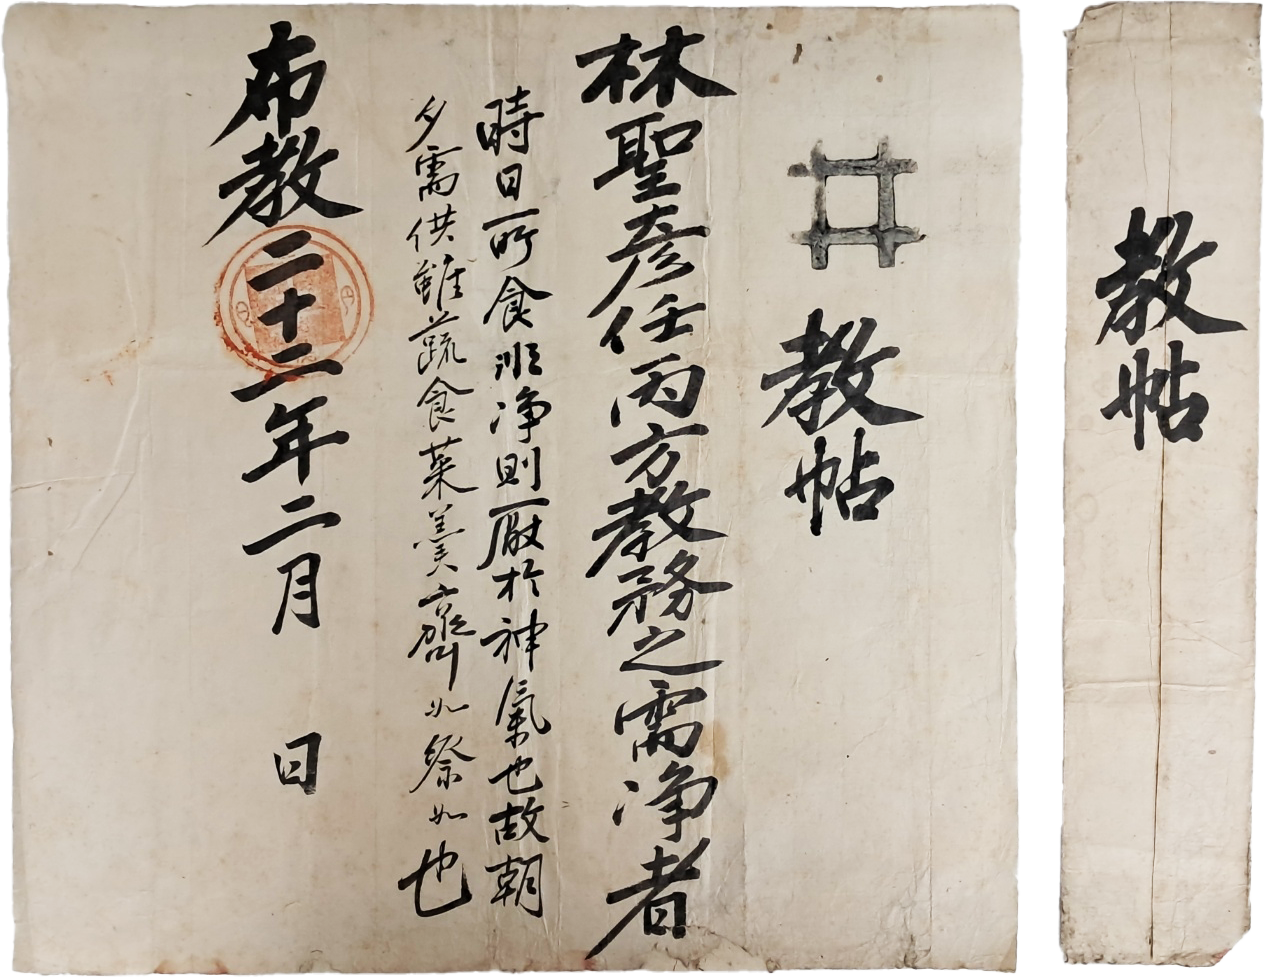 教帖
教帖
林聖彦任丙方教務之需净者
時日所食非净則厭於神氣也故朝
夕需供雖蔬食菜羹齊如祭如也
布教二十二年二月 日